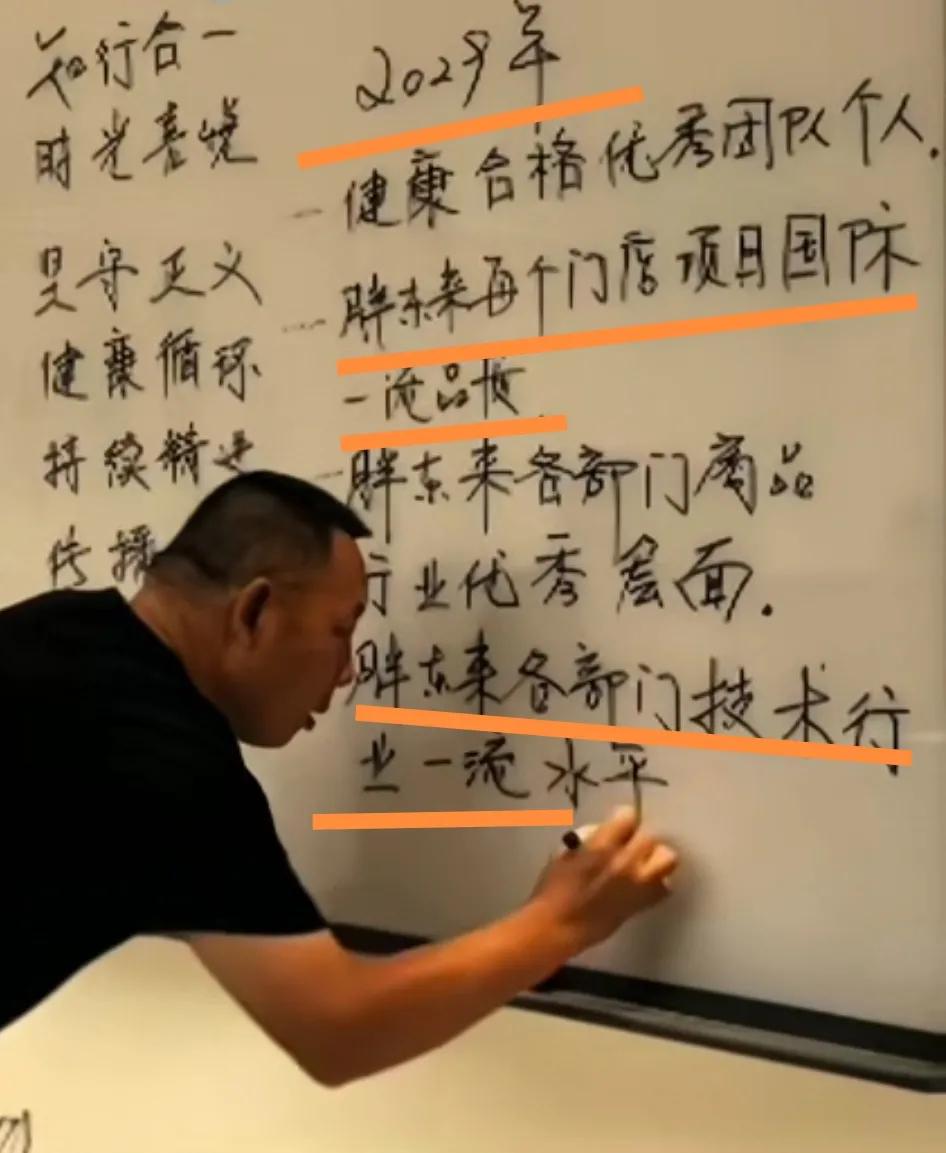 知行合一
时光
坚守正义
健康循环
持续精进
传播
2029年
－健康合格优秀团队个人.
－胖东来每个门店项目国际
一流品质
－胖东来各部门商品
行业优秀层面.
胖东来各部门技术行
业一流水平